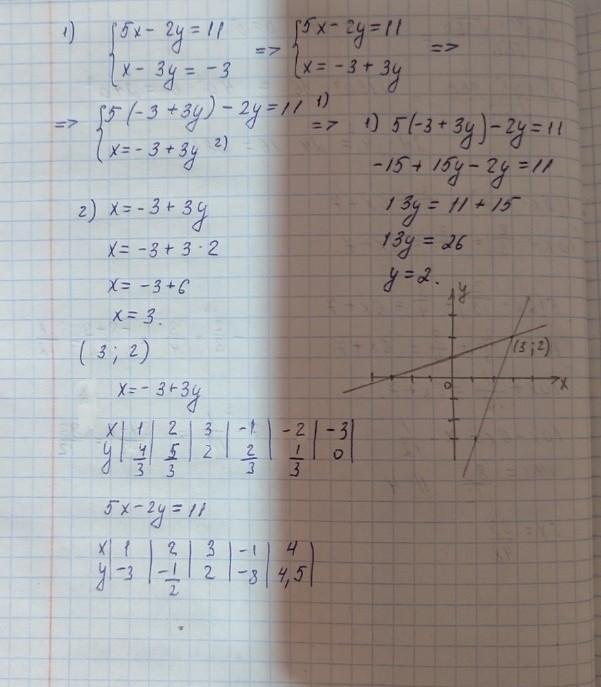 1) {5x - 2y = 11 => {5x - 2y = 11 =>
{x - 3y = -3 {x = -3 + 3y
=> {5(-3 + 3y) - 2y = 11 1) => 1) 5(-3 + 3y) - 2y = 11
{x = -3 + 3y 2)
-15 + 15y - 2y = 11
13y = 11 + 15
13y = 26
y = 2.
2) x = -3 + 3y
x = -3 + 3 · 2
x = -3 + 6
x = 3.
(3; 2)
y
(3; 2)
0
x
x = -3 + 3y
x | 1 | 2 | 3 | -1 | -2 | -3 |
y | 4/3 | 5/3 | 2 | 2/3 | 1/3 | 0 |
5x - 2y = 11
x | 1 | 2 | 3 | -1 | 4 |
y | -3 | -1/2 | 2 | -8 | 4,5 |